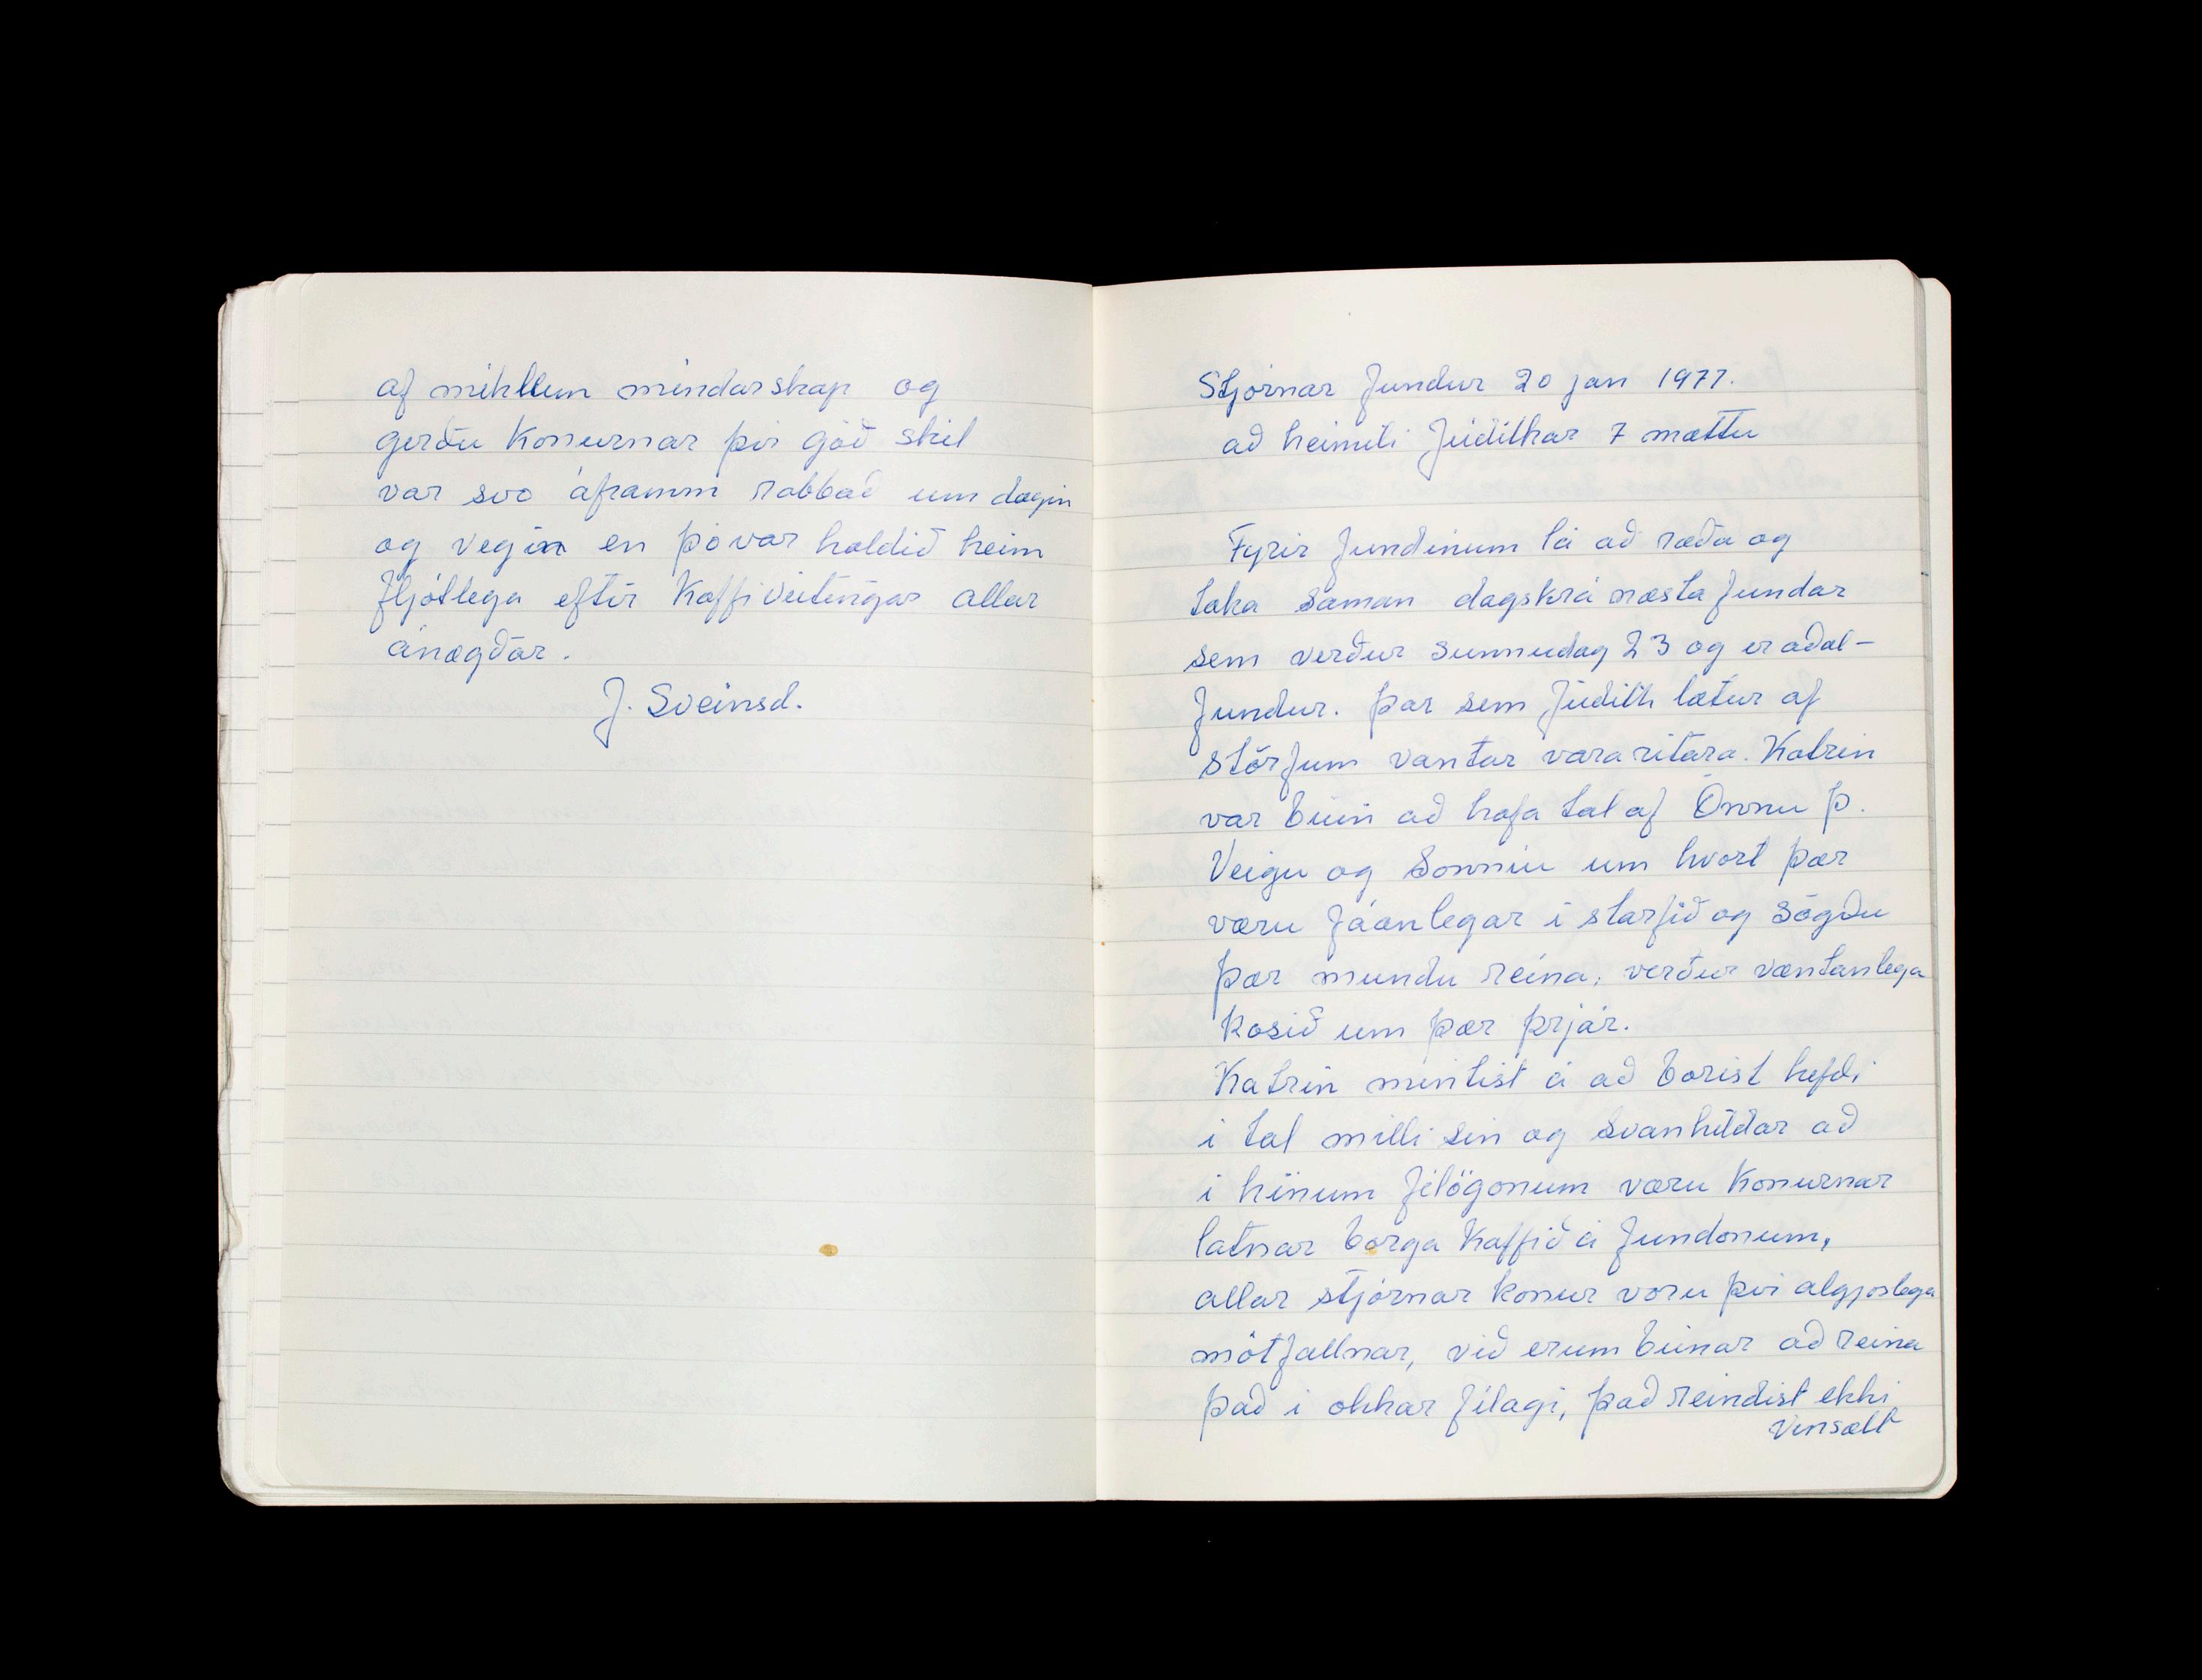 af mikllum mindarskap og
gerðu Konurnar þvi góð skil
var svo áframm rabbað um dagin
og vegin en þó var haldið heim
fljótlega eftir Kaffiveitingar allar
ánægðar.
J. Sveinsd.
Stjórnar fundur 20 jan 1977.
að heimili Júdithar 7 mættu
Fyrir fundinum lá að ræða og
taka saman dagskrá næsta fundar
sem verður sunnudag 23 og er aðal-
fundur. Þar sem Júdith lætur af
störfum vantar vararitara. Katrin
var búin að hafa tal af Önnu Þ.
Veigu og Sonniu um hvort þær
væru fáanlegar i starfið og sögðu
þær mundu reina, verður væntanlega
Kosið um þær þrjár.
Katrin mintist á að borist hefdi
i tal milli sin og Svanhildar að
i hinum félögonum væru Konurnar
látnar borga Kaffið á fundonum,
allar stjórnar konur voru þvi algjörlega
mótfallnar, við erum búnar að reina
það i okkar félagi, það reindist ekki
vinsælt